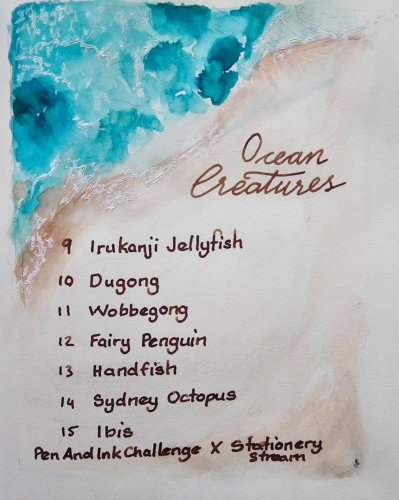 Ocean
Creatures
9 Irukanji Jellyfish
10 Dugong
11 Wobbegong
12 Fairy Penguin
13 Handfish
14 Sydney Octopus
15 Ibis
Pen And Ink Challenge X Stationery
Stream